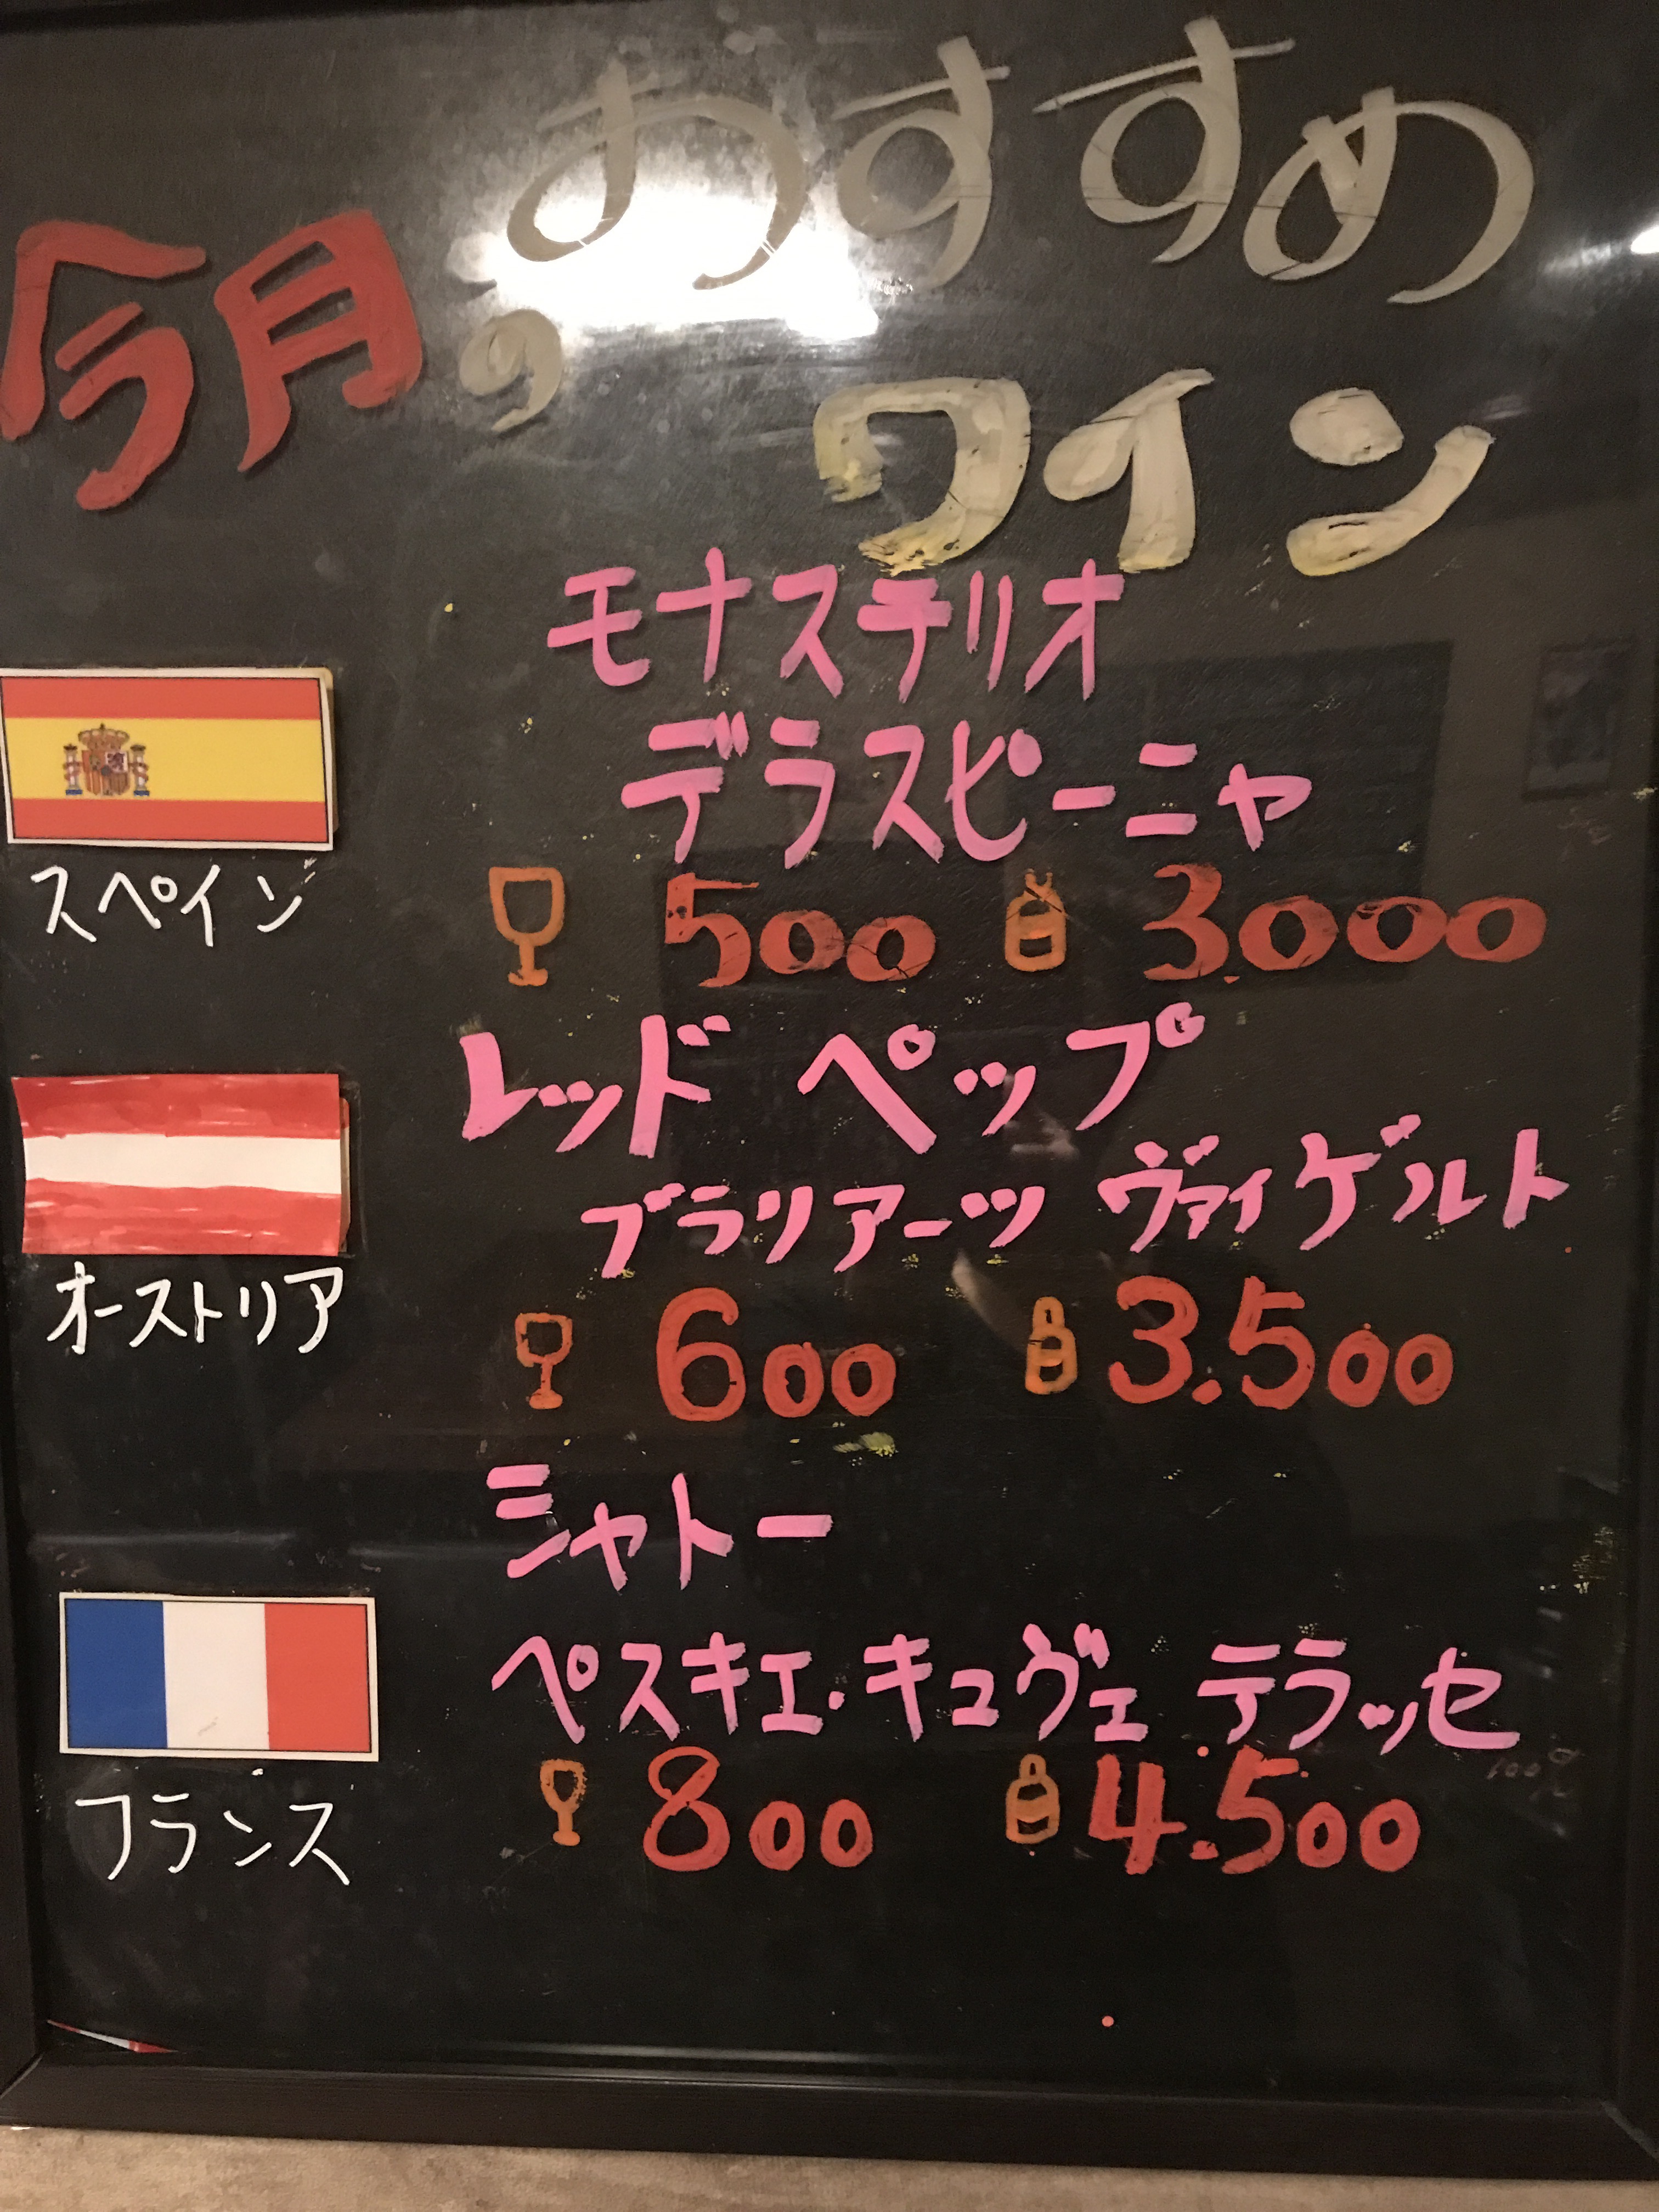 今月の
おすすめ
ワイン
モナステリオ
デラスピーニャ
スペイン
500 3.000
レッド ペップ
ブラリアーツ ヴァイゲルト
オーストリア
600 3.500
シャトー
ペスキエ・キュヴェ テラッセ
フランス
800 4.500